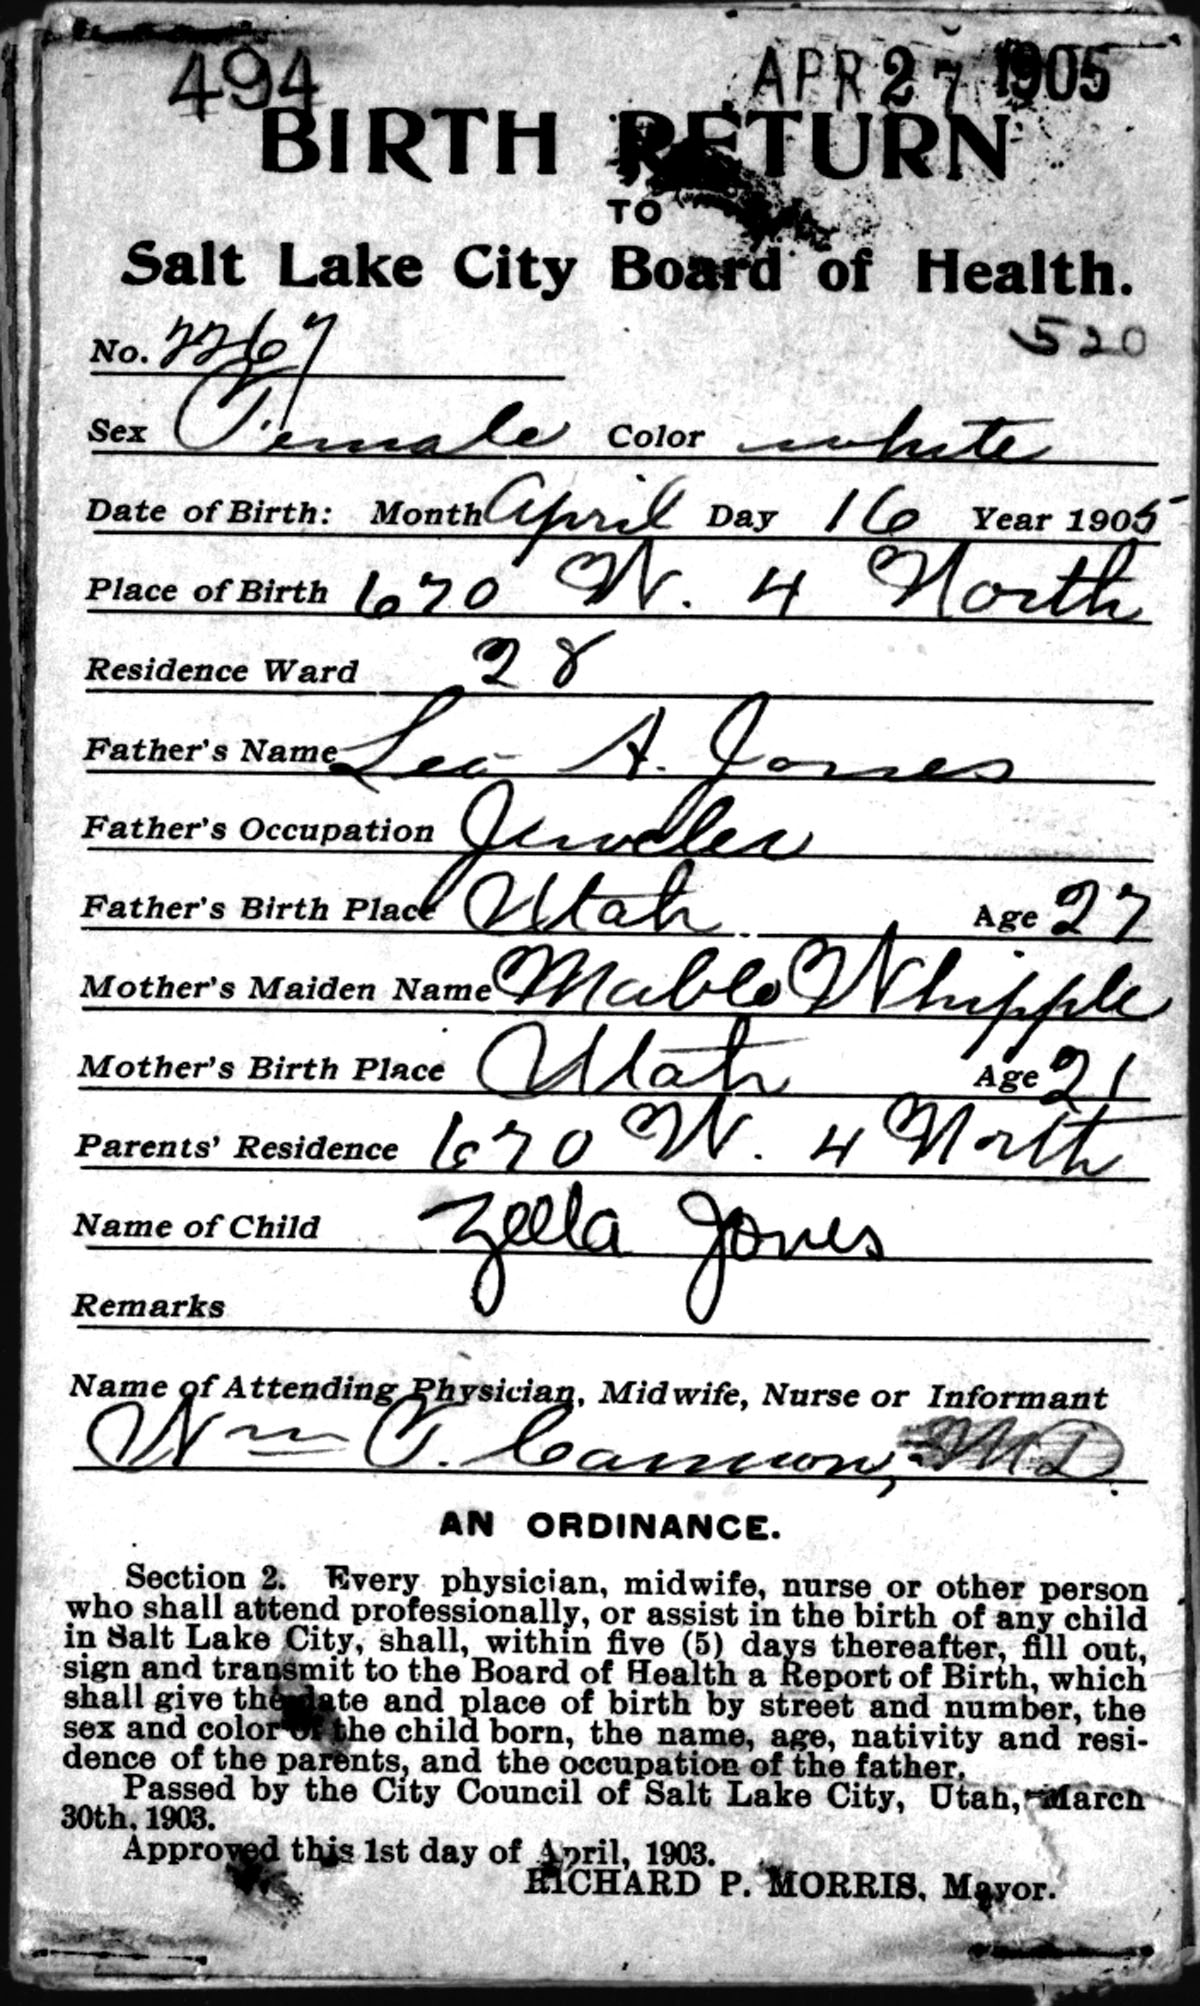 494 APR 27 1905
BIRTH RETURN
TO
Salt Lake City Board of Health.
No. 2267 520
Sex Female Color white
Date of Birth: Month April Day 16 Year 1905
Place of Birth 670 W. 4 North
Residence Ward 28
Father's Name Leo A. Jones
Father's Occupation Jeweler
Father's Birth Place Utah Age 27
Mother's Maiden Name Mable Whipple
Mother's Birth Place Utah Age 21
Parents' Residence 670 W. 4 North
Name of Child Zella Jones
Remarks
Name of Attending Physician, Midwife, Nurse or Informant
Wm T. Cannon, M.D.
AN ORDINANCE.
Section 2. Every physician, midwife, nurse or other person
who shall attend professionally, or assist in the birth of any child
in Salt Lake City, shall, within five (5) days thereafter, fill out,
sign and transmit to the Board of Health a Report of Birth, which
shall give the date and place of birth by street and number, the
sex and color of the child born, the name, age, nativity and resi-
dence of the parents, and the occupation of the father.
Passed by the City Council of Salt Lake City, Utah, March
30th, 1903.
Approved this 1st day of April, 1903.
RICHARD P. MORRIS, Mayor.